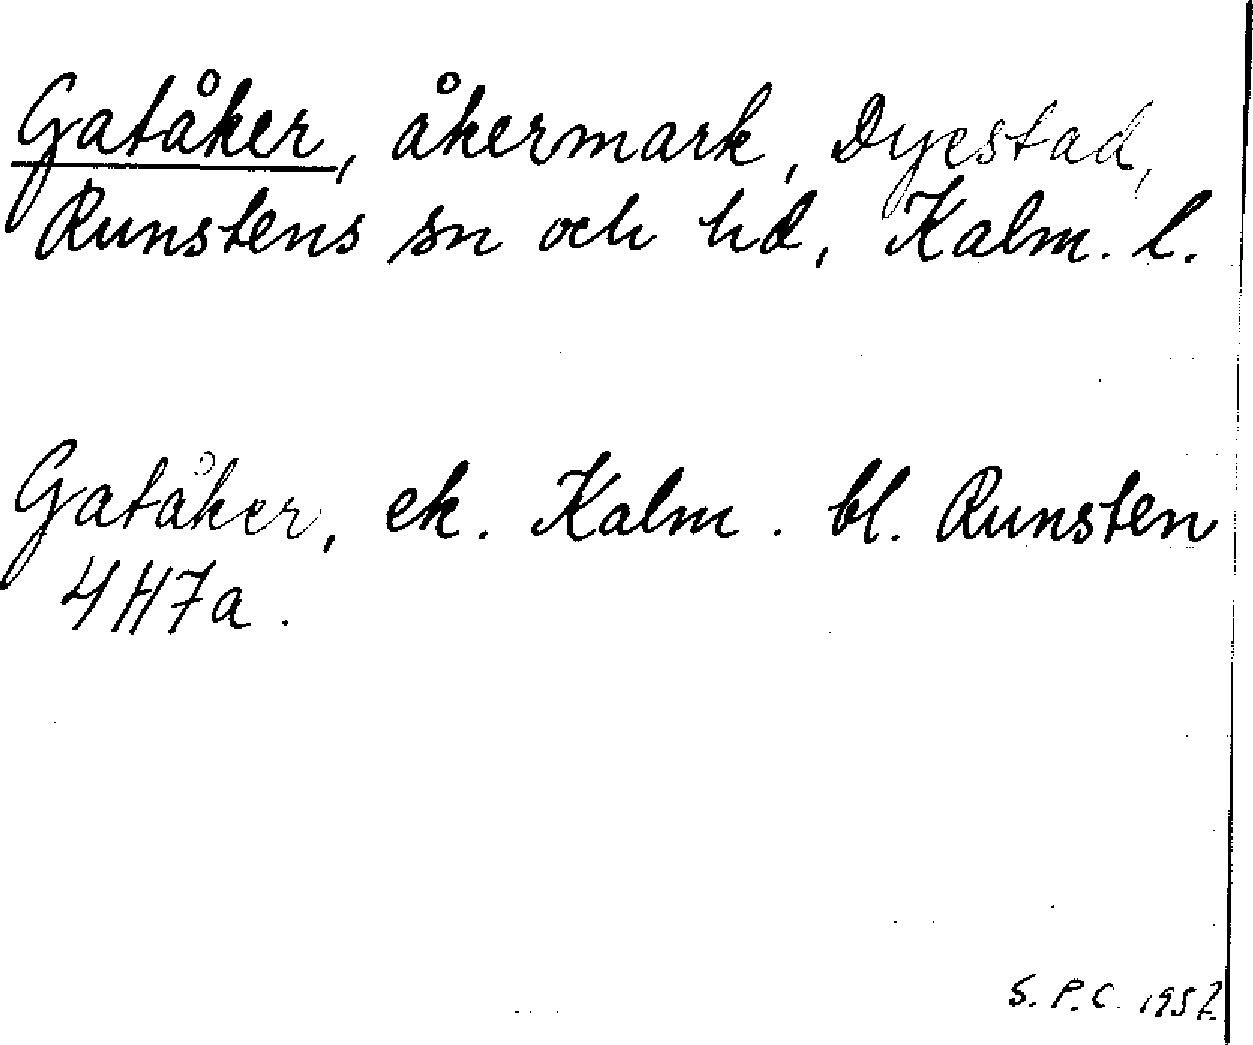 Gatåker, åkermark, Dyestad,
Runstens sn och hd, Kalm. l.
Gatåker, ek. Kalm. bl. Runsten
4H7a.
S. P. C.